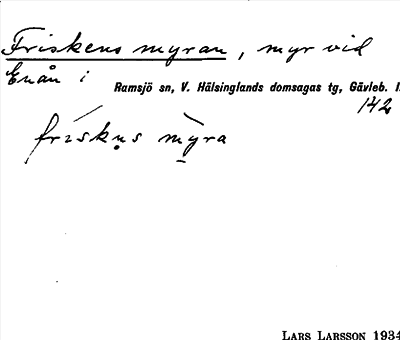 Friskens myran, myr vid
Enån i
Ramsjö sn, V. Hälsinglands domsagas tg, Gävleb. l.
142
friskṇs mỳra
LARS LARSSON 1934